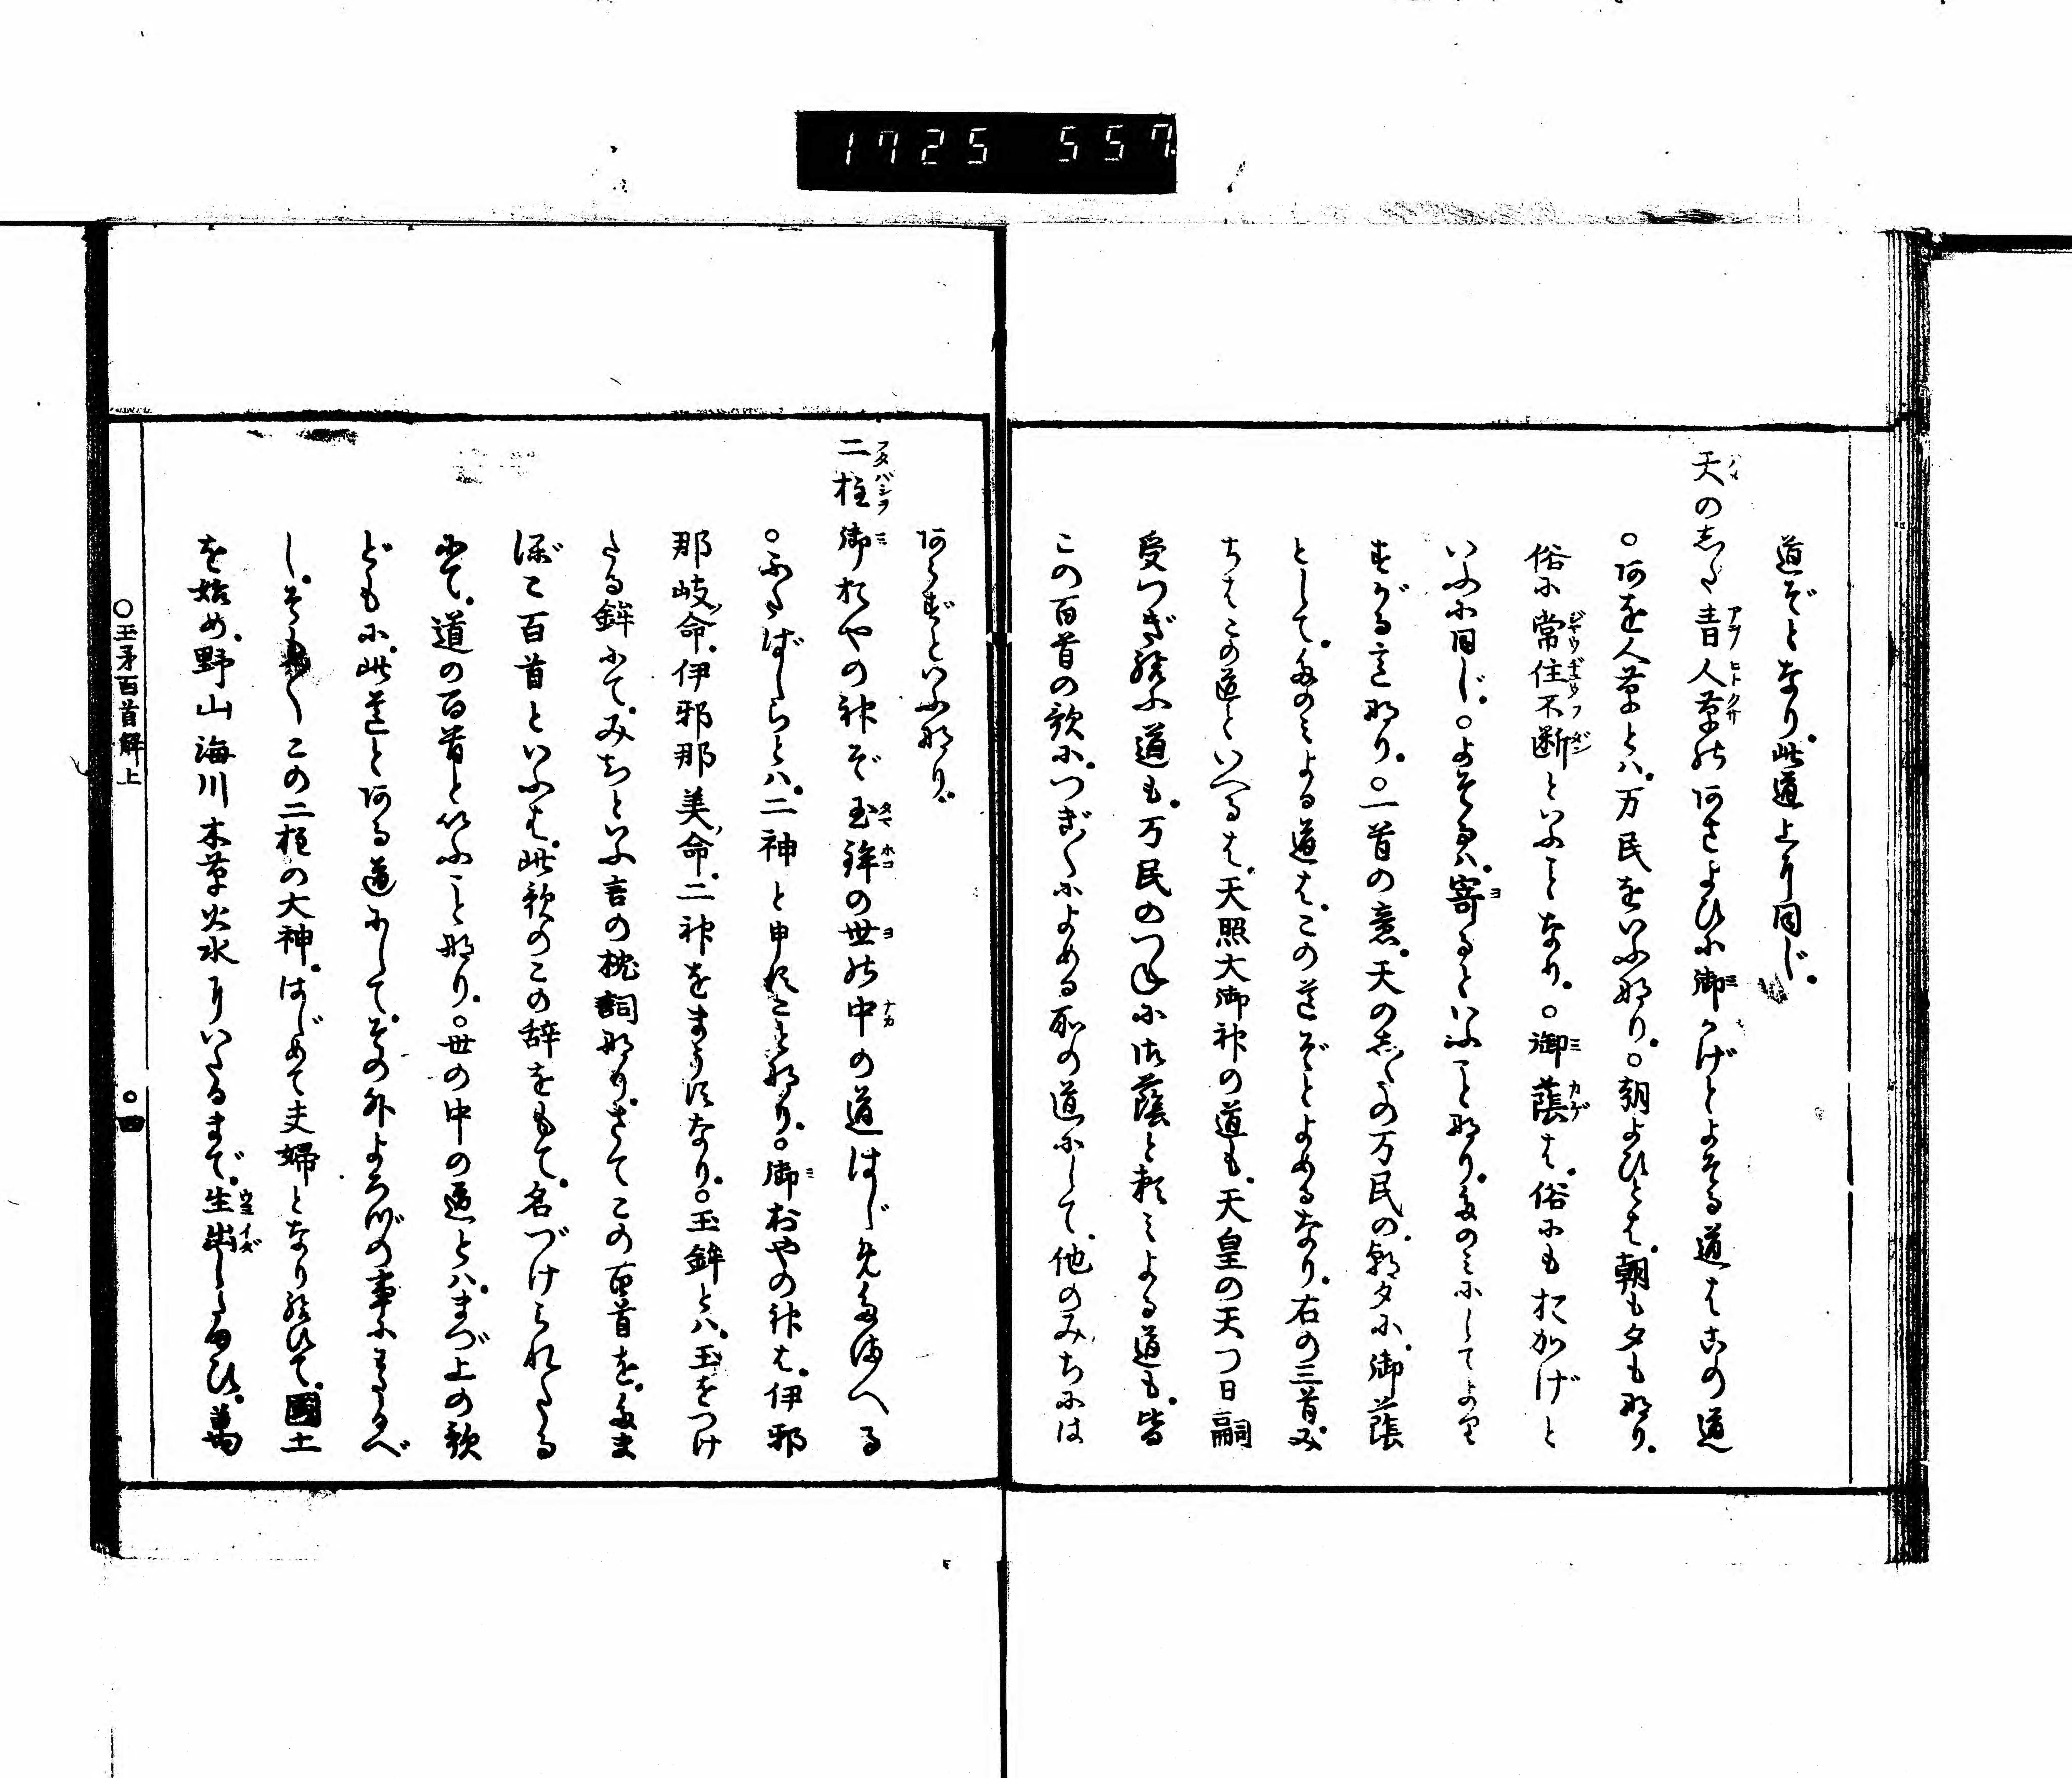 1725 557
道ぞとなり。此道上ニ同じ。
天の志た青人草のあさよひに御かげとよそる道はこの道
○あを人草とハ。万民をいふ也。○朝よひとは。朝も夕も也。
俗に常住不断といふことなり。○御蔭は。俗にもおかげと
いふに同じ。○よそるハ。寄るといふこと也。たのみにしてより
すがる意也。○一首の意。天の志たの万民の。朝夕に。御蔭
として。たのみよる道は。この道ぞとよめるなり。右の三首。み
ちはこの道といへるは。天照大御神の道も。天皇の天つ日嗣
受つぎ給ふ道も。万民のつねに御蔭と頼みよる道も。皆
この百首の歌に。つぎ〱によめる所の道にして。他のみちには
あらずといふ也。
二柱御おやの神ぞ玉鉾の世の中の道はじめたまへる
○ふたばしらとハ。二神と申すこと也。○御おやの神は。伊邪
那岐ノ命。伊邪那美ノ命。二神をまうすなり。○玉鉾とハ。玉をつけ
たる鉾にて。みちといふ言の枕詞也。さてこの百首を。たま
ぼこ百首といふは。此歌のこの辞をもて。名づけられたる
にて。道の百首といふこと也。○世の中の道とハ。まづ上の歌
どもに。此道とある道にして。その外よろづの事にわたるべ
し。そも〱この二柱の大神。はじめて夫婦となり給ひて。國土
を始め。野山海川木草火水ニいたるまで。生出したまひ。萬
○玉矛百首解上 ○四